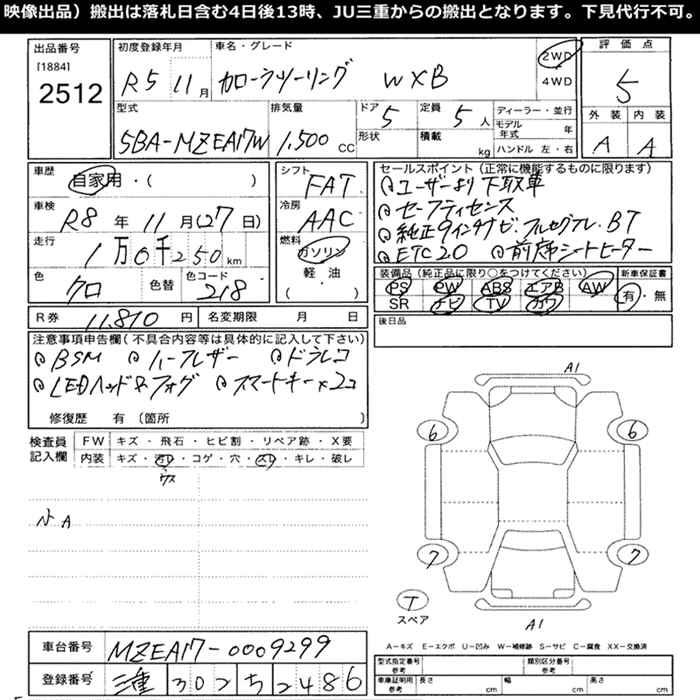 映像出品）搬出は落札日含む4日後13時、JU三重からの搬出となります。下見代行不可。
出品番号 初度登録年月 車名・グレード 評価点
[1884]
2512 R5 11月 カローラツーリング WXB 2WD 4WD 5
型式 排気量 ドア 5 定員 5人 ディーラー・並行 外装 内装
5BA-MZEA17W 1.500 CC 形状 積載 kg モデル年式 年 A A
ハンドル 左・右
車歴 シフト セールスポイント(正常に機能するものに限ります)
自家用・( ) FAT ユーザーより下取車
車検 冷房 セーフティセンス
R8年11月(27日) AAC 純正9インチナビ.フルセグTV.BT
走行 燃料 ETC2.0 前席シートヒーター
1万0千250km ガソリン 軽油 ( ・ )
色 色替 色コード 装備品(純正品に限り○をつけてください) 新車保証書
クロ 218 PS PW ABS エアB AW 有・無
SR ナビ TV カワ
R券 11.810円 名変期限 月 日 後日品
注意事項申告欄(不具合内容等は具体的に記入して下さい)
BSM ハーフレザー ドラレコ
LEDヘッド&フォグ スマートキー×2コ
修復歴 有(箇所 )
検査員記入欄 FW キズ・飛石・ヒビ割・リペア跡・X要
内装 キズ・汚レ・コゲ・穴・スレ・キレ・破レ
ウス
小A
A1
6 6
7 7
T
スペア
A1
A－キズ E－エクボ U－凹み W－補修跡 S－サビ C－腐食 XX－交換済
車台番号 MZEA17-0009299
登録番号 三重 302 ち 2486
型式指定番号 参考 類別区分番号 参考
車庫証明用 参考 長さ cm 幅 cm 高さ cm